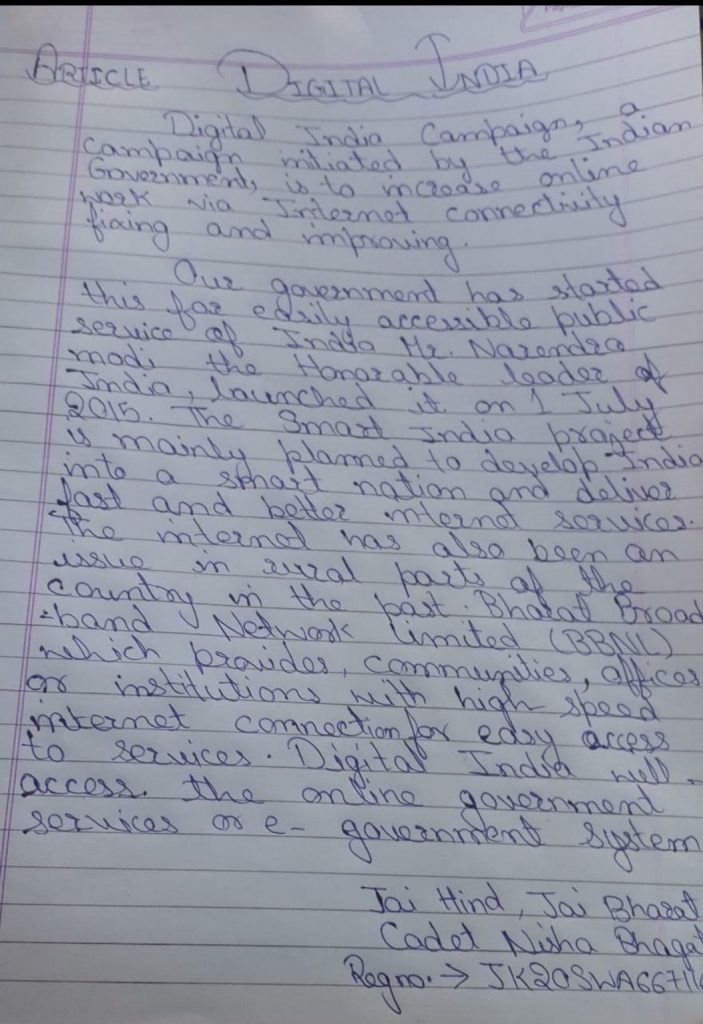 ARTICLE DIGITAL INDIA
Digital India Campaign, a
campaign initiated by the Indian
Government, is to increase online
work via Internet connectivity
fixing and improving.
Our government has started
this for easily accessible public
service of India Mr. Narendra
modi the Honorable leader of
India, launched it on 1 July
2015. The Smart India project
is mainly planned to develop India
into a smart nation and deliver
fast and better internet services.
The internet has also been an
issue in rural parts of the
country in the past. Bharat Broad
-band Network Limited (BBNL)
which provides, communities, offices
or institutions with high speed
internet connection for easy access
to services. Digital India will
access. the online government
services or e- government system
Jai Hind, Jai Bharat
Cadet Nisha Bhagat
Regno. →